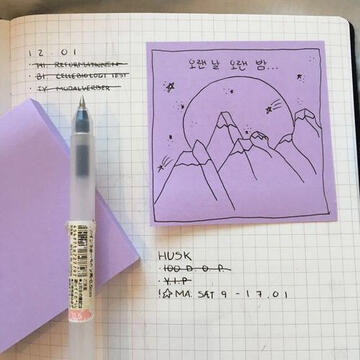 12.01
· HI. REFORMATIONEN
· BI. CELLEBIOLOGI TEST
· TY. MODALVERBER
오랜 날 오랜 밤...
HUSK
· 100 D.O.P.
· V.I.P
!☆ MA. SAT 9 - 17.01